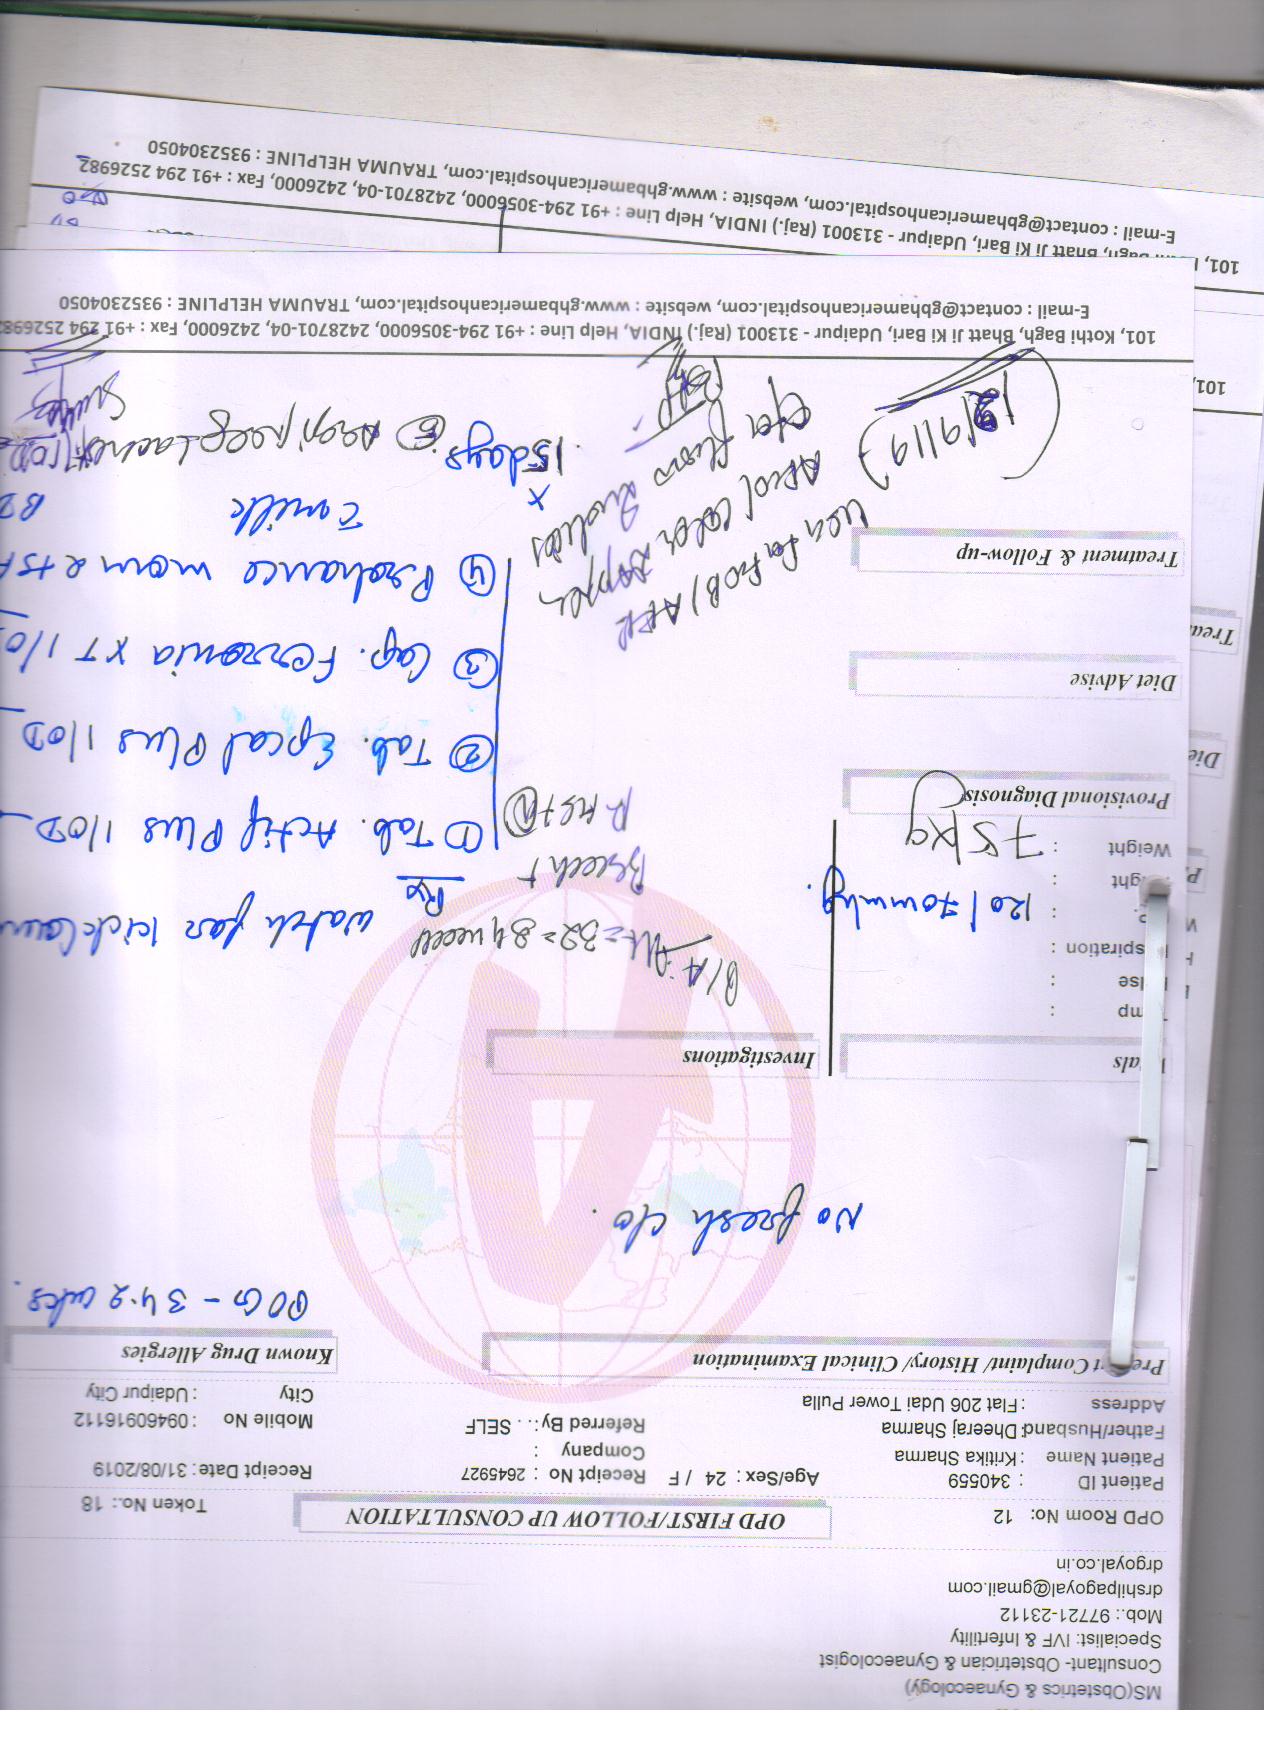 MS(Obstetrics & Gynaecology)
Consultant- Obstetrician & Gynaecologist
Specialist: IVF & Infertility
Mob.: 97721-23112
drshilpagoyal@gmail.com
drgoyal.co.in
OPD Room No: 12 OPD FIRST/FOLLOW UP CONSULTATION Token No.: 18
Patient ID : 340559 Age/Sex : 24 / F Receipt No : 2645927 Receipt Date: 31/08/2019
Patient Name : Kritika Sharma Company :
Father/Husband: Dheeraj Sharma Referred By: . . SELF Mobile No : 09460916112
Address : Flat 206 Udai Tower Pulla City : Udaipur City
Complaint/ History/ Clinical Examination Known Drug Allergies
POG - 34.2 wks.
No fresh c/o.
Investigations
Temp :
:
Respiration :
120/70mmhg.
Weight : 75kg
P/A Ut = 32-34 week
Breech +
FHS+(N)
Watch for kick count
Rx
① Tab. Actif Plus 1/OD
② Tab. Epcal Plus 1/OD
③ Cap. Ferronia XT 1/OD
④ Prohance mom 2 tsf
c milk BD
x
15 days
Provisional Diagnosis
Diet Advise
Treatment & Follow-up
USG for FWB/AFI
colour doppler
studies
12/9/19
101, Kothi Bagh, Bhatt Ji Ki Bari, Udaipur - 313001 (Raj.) INDIA, Help Line : +91 294-3056000, 2428701-04, 2426000, Fax : +91 294 2526982
E-mail : contact@gbhamericanhospital.com, website : www.gbhamericanhospital.com, TRAUMA HELPLINE : 9352304050
101,
101, Bagh, Bhatt Ji Ki Bari, Udaipur - 313001 (Raj.) INDIA, Help Line : +91 294-3056000, 2428701-04, 2426000, Fax : +91 294 2526982
E-mail : contact@gbhamericanhospital.com, website : www.gbhamericanhospital.com, TRAUMA HELPLINE : 9352304050